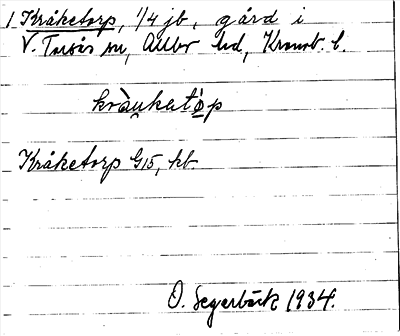 1 Kråketorp, 1/4 jb, gård i
V. Torsås sn, Allbo hd, Kronob. l.
kråu̯katò̱p
Kråketorp G15, kb.
O. Segerbäck 1934.